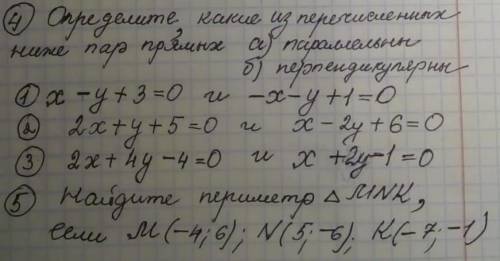 ④ Определите, какие из перечисленных
ниже пар прямых а) параллельны
б) перпендикулярны
① x - y + 3 = 0 и -x - y + 1 = 0
② 2x + y + 5 = 0 и x - 2y + 6 = 0
③ 2x + 4y - 4 = 0 и x + 2y - 1 = 0
⑤ Найдите периметр △ MNK,
если M(-4; 6); N(5; -6); K(-7; -1)